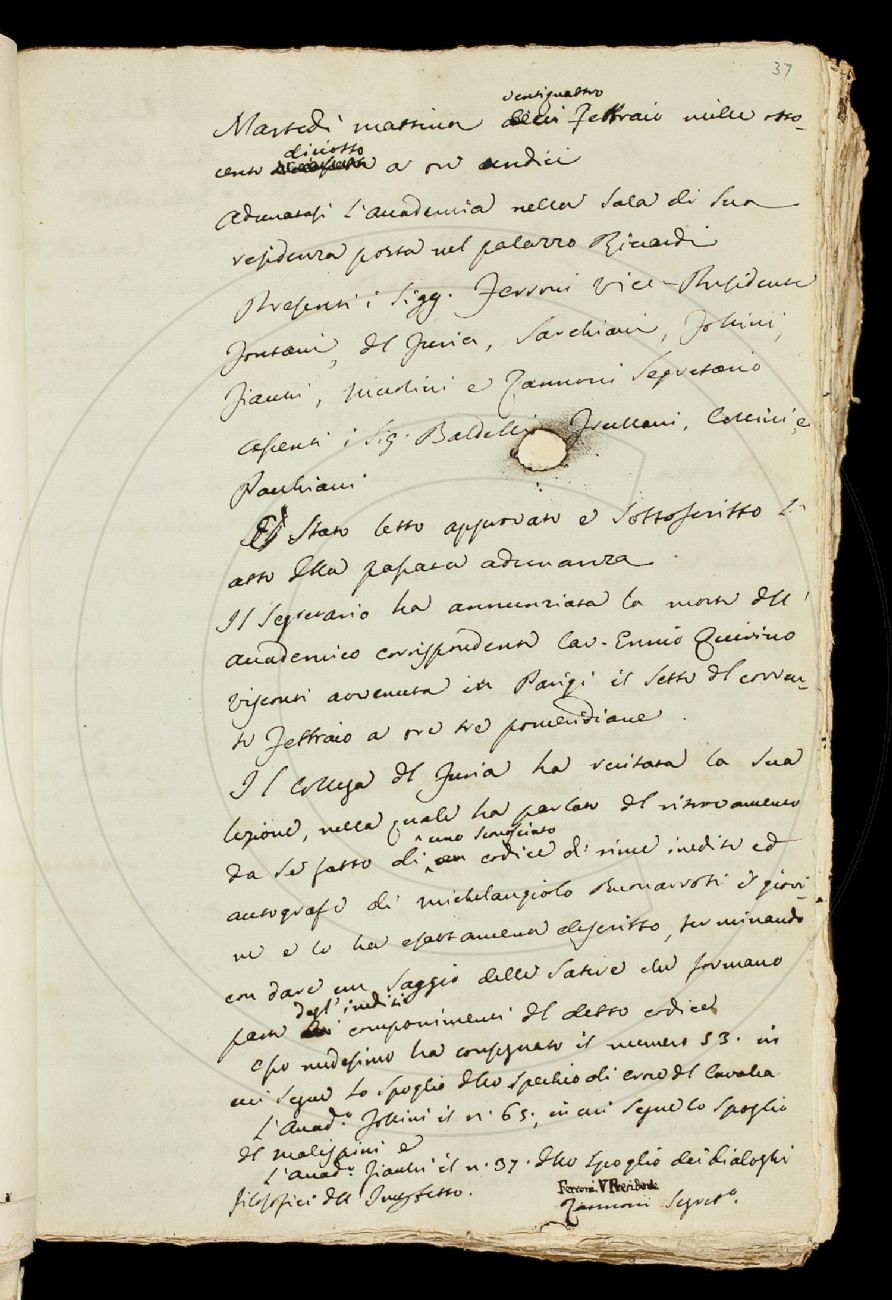 37
Martedì mattina ventiquattro Febbraio mille otto-
cento diciotto a ore undici
Adunatasi l'accademia nella Sala di Sua
residenza posta nel palazzo Riccardi
Presenti i Sigg. Ferroni Vice-Presidente
Fontani, del Furia, Sarchiani, Follini,
Fiacchi, Niccolini e Zannoni Segretario
Assenti i Sig. Baldelli, Frullani, Collini, e
Pacchiani
È Stato letto approvato e Sottoscritto l'
atto della passata adunanza.
Il Segretario ha annunziata la morte dell'
accademico corrispondente Cav. Ennio Quirino
Visconti avvenuta in Parigi il Sette del corren-
te Febbraio a ore tre pomeridiane.
Il Collega del Furia ha recitata la Sua
lezione, nella quale ha parlato del ritrovamento
da Se fatto di uno Sconosciuto codice di rime inedite ed
autografe di Michelangiolo Buonarroti il giovi-
ne e lo ha esattamente descritto, terminando
con dare un Saggio delle Satire che formano
parte degl'inediti componimenti del detto codice
Esso medesimo ha consegnato il numero 53. in
cui segue lo Spoglio dello Specchio di croce del Cavalca
L'Accad.º Follini il n. 65, in cui Segue lo Spoglio
del Malispini e
L'Accad.º Fiacchi il n. 37. dello Spoglio dei dialoghi
filosofici del
Ferroni V. Presidente
Zannoni Segret.º